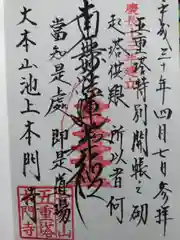 平成三十年四月七日参拝
五重塔特別開帳之砌
慶長十三年建立
起塔供養 所以者何
南無妙法蓮華経
當知是處 即是道場
大本山池上本門寺
五重塔